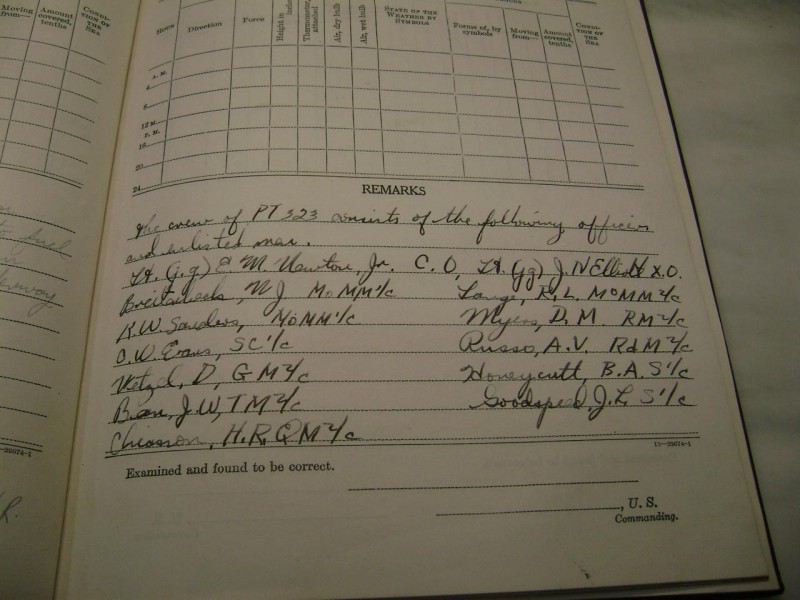 Moving from— Amount covered, tenths Condition of the Sea
Hour Direction Force Height in inches Thermometer attached Air, dry bulb Air, wet bulb State of the Weather by Symbols Forms of, by symbols Moving from— Amount covered, tenths Condition of the Sea
A. M.
4
8
12 M.
P. M.
16
20
24
REMARKS
The crew of PT 323 consists of the following officers
and enlisted men.
Lt. (j.g) E. M. Newton, Jr. C. O, Lt. (jg) J. N Elliott X.O.
N J MoMM 1/c Lange, R. L. MoMM 2/c
R. W. Saunders, MoMM 1/c Myers, D. M. RM 2/c
O. W. Evans, SC 1/c Russo, A. V. RdM 2/c
Wetzel, D, G M 2/c Honeycutt, B. A. S 1/c
J. W, TM 2/c Goodspeed, J. L. S 1/c
Chiasson, H. R. QM 2/c
15—29674-1
Examined and found to be correct.
, U. S.
Commanding.